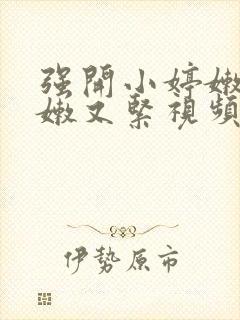 强開小婷嫩
嫩又緊視頻
伊勢原市